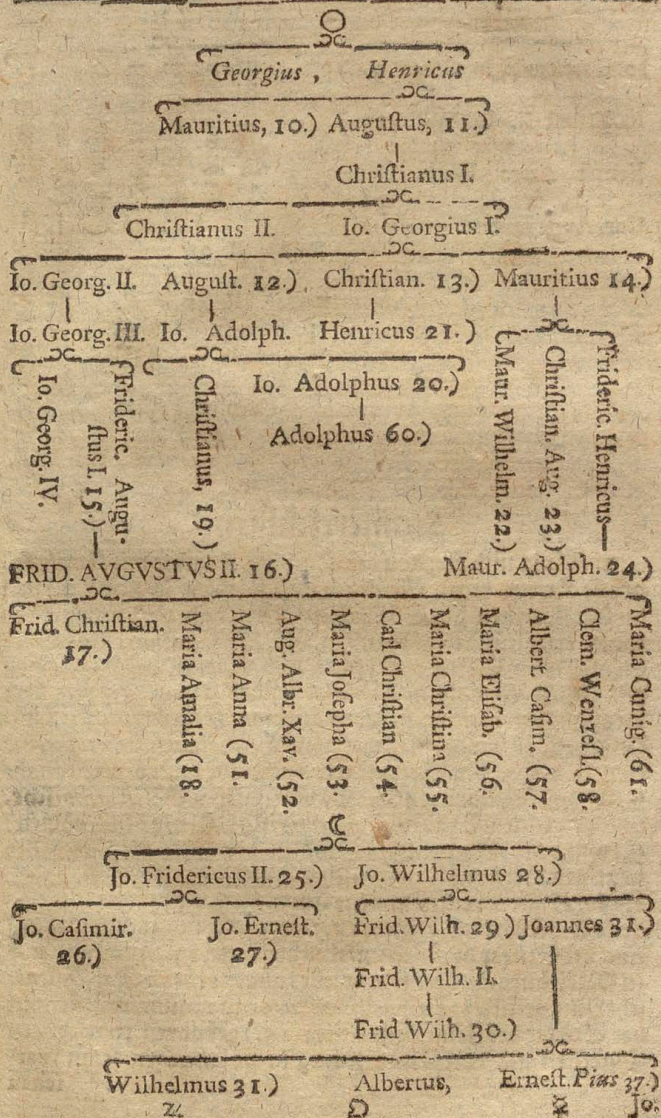 Georgius , Henricus
Mauritius, 10.) Auguſtus, 11.)
Chriſtianus I.
Chriſtianus II. Io. Georgius I.
Io. Georg. II. Auguſt. 12.) Chriſtian. 13.) Mauritius 14.)
Io. Georg. III. Io. Adolph. Henricus 21.)
Io. Georg. IV.
Frideric. Augu-
ſtus I. 15.)
Chriſtianus, 19.)
Io. Adolphus 20.)
Adolphus 60.)
Maur. Wilhelm. 22.)
Chriſtian. Aug. 23.)
Frideric. Henricus
FRID. AVGVSTVS II. 16.) Maur. Adolph. 24.)
Frid. Chriſtian.
17.)
Maria Amalia (18.
Maria Anna (51.
Aug. Albr. Xav. (52.
Maria Joſepha (53.
Carl Chriſtian (54.
Maria Chriſtina (55.
Maria Eliſab. (56.
Albert Caſim. (57.
Clem. Wenzeſl. (58.
Maria Cunig. (61.
Jo. Fridericus II. 25.) Jo. Wilhelmus 28.)
Jo. Caſimir. Jo. Erneſt. Frid. Wilh. 29) Joannes 31.)
26.) 27.)
Frid. Wilh. II.
Frid Wilh. 30.)
Wilhelmus 31.) Albertus, Erneſt. Pius 37.)
Jo.